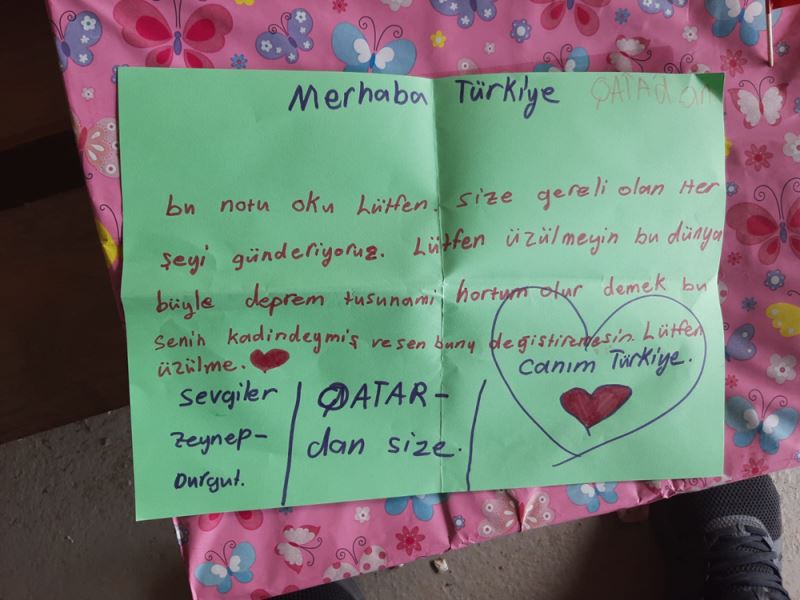 Merhaba Türkiye QATAdan
bu notu oku Lütfen. size gereli olan Her
şeyi günderiyoruz. Lütfen üzülmeyin bu dünya
büyle deprem tusunami hortum olur demek bu
senin kadirdeymiş ve sen bunu degistiremesin. Lütfen
üzülme.
canım Türkiye.
sevgiler
zeynep-
Durgut.
QATAR-
dan size.